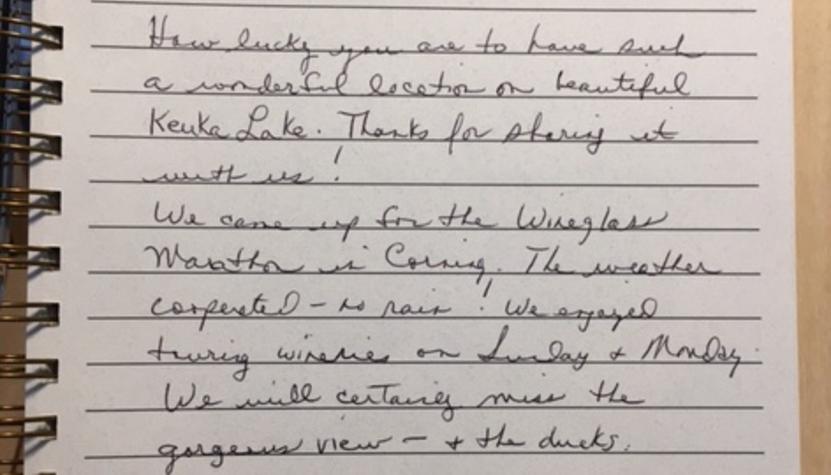 How lucky you are to have such
a wonderful location on beautiful
Keuka Lake. Thanks for sharing it
with us!
We came up for the Wineglass
Marathon in Corning. The weather
cooperated - no rain! We enjoyed
touring wineries on Sunday & Monday.
We will certainly miss the
gorgeous view - & the ducks.